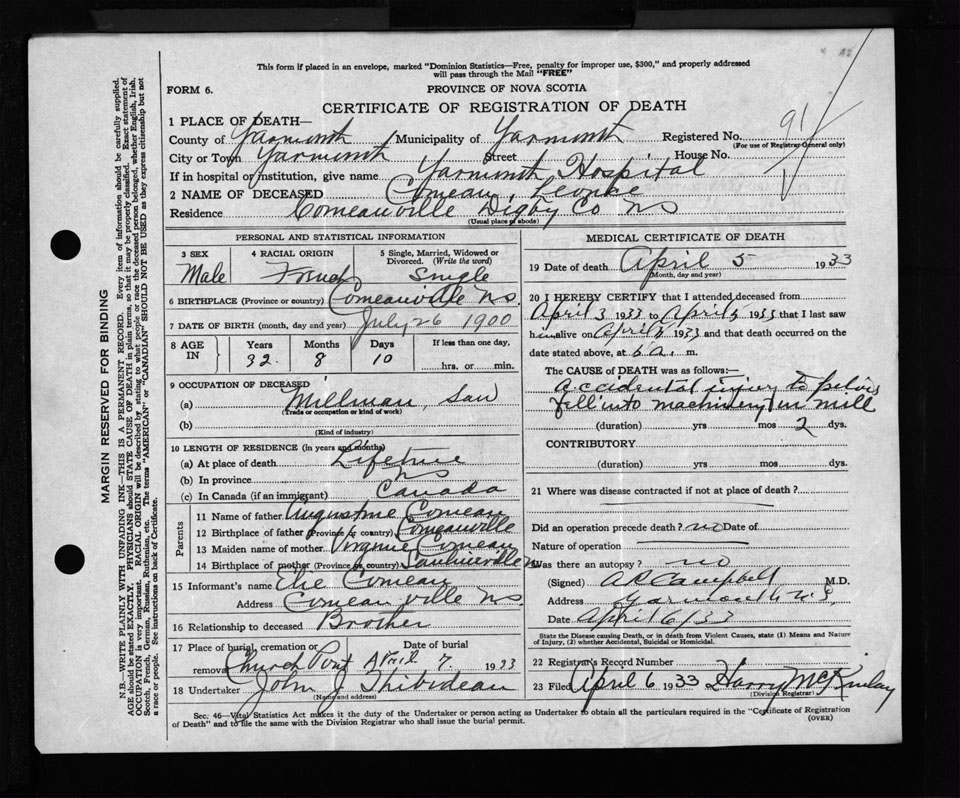 This form if placed in an envelope, marked "Dominion Statistics—Free, penalty for improper use, $300," and properly addressed
will pass through the Mail "FREE"
FORM 6.
PROVINCE OF NOVA SCOTIA
CERTIFICATE OF REGISTRATION OF DEATH
1 PLACE OF DEATH—
County of Yarmouth Municipality of Yarmouth Registered No. 91
(For use of Registrar General only)
City or Town Yarmouth Street House No.
If in hospital or institution, give name Yarmouth Hospital
2 NAME OF DECEASED Comeau,
Residence Comeauville Digby Co NS
(Usual place of abode)
PERSONAL AND STATISTICAL INFORMATION
3 SEX 4 RACIAL ORIGIN 5 Single, Married, Widowed or Divorced. (Write the word)
Male French Single
6 BIRTHPLACE (Province or country) Comeauville NS.
7 DATE OF BIRTH (month, day and year) July 26 1900
8 AGE IN Years Months Days If less than one day.
32. 8 10 hrs. or min.
9 OCCUPATION OF DECEASED
(a) Millman, Saw
(Trade or occupation or kind of work)
(b)
(Kind of industry)
10 LENGTH OF RESIDENCE (in years and months)
(a) At place of death Lifetime
(b) In province NS
(c) In Canada (if an immigrant) Canada
Parents
11 Name of father Augustine Comeau
12 Birthplace of father (Province or country) Comeauville
13 Maiden name of mother Virginie Comeau
14 Birthplace of mother (Province or country) Saulnierville N
15 Informant's name Elie Comeau
Address Comeauville NS.
16 Relationship to deceased Brother
17 Place of burial, cremation or removal Date of burial
Church Point April 7. 1933
18 Undertaker John J Thibideau
(Name and address)
MEDICAL CERTIFICATE OF DEATH
19 Date of death April 5 1933
(Month, day and year)
20 I HEREBY CERTIFY that I attended deceased from
April 3 1933 to April 5 1933 that I last saw
him alive on April 5 1933 and that death occurred on the
date stated above, at 6 a. m.
The CAUSE of DEATH was as follows:—
Accidental injury to pelvis
fell into machinery in mill
(duration) yrs mos 2 dys.
CONTRIBUTORY
(duration) yrs mos dys.
21 Where was disease contracted if not at place of death?
Did an operation precede death? no Date of
Nature of operation
Was there an autopsy? no
(Signed) A R Campbell M.D.
Address Yarmouth N.S.
Date April 6/33
State the Disease causing Death, or in death from Violent Causes, state (1) Means and Nature
of Injury, (2) whether Accidental, Suicidal or Homicidal.
22 Registrar's Record Number
23 Filed April 6 1933 Harry McKinlay
(Division Registrar)
Sec. 46—Vital Statistics Act makes it the duty of the Undertaker or person acting as Undertaker to obtain all the particulars required in the "Certificate of Registration
of Death" and to file the same with the Division Registrar who shall issue the burial permit.
(OVER)
MARGIN RESERVED FOR BINDING
N.B.—WRITE PLAINLY WITH UNFADING INK—THIS IS A PERMANENT RECORD. Every item of information should be carefully supplied.
AGE should be stated EXACTLY. PHYSICIANS should STATE CAUSE OF DEATH in plain terms, so that it may be properly classified. Exact statement of
OCCUPATION is very important. RACIAL ORIGIN will be described by stating to what people or race the deceased person belonged, whether English, Irish,
Scotch, French, German, Russian, Ruthenian, etc. The terms "AMERICAN" or "CANADIAN" SHOULD NOT BE USED as they express citizenship but not
a race or people. See instructions on back of Certificate.